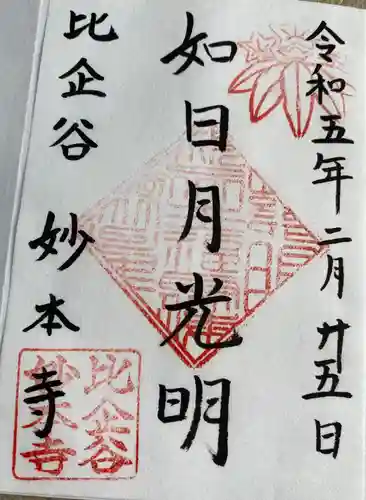 令和五年二月廿五日
如日月光明
比企谷
妙本寺
比企谷
妙本寺